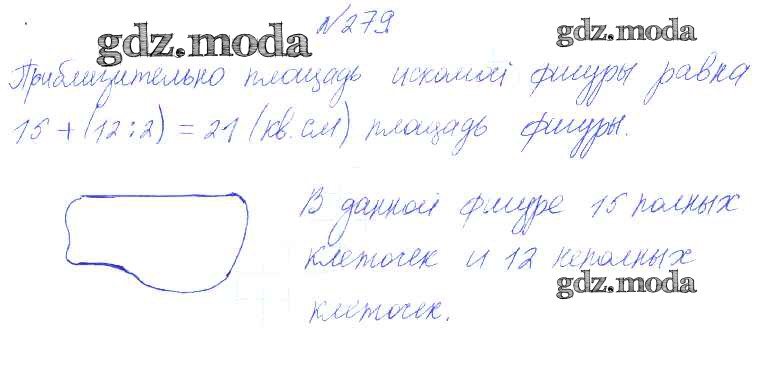 №279
gdz.moda
gdz.moda
Приблизительно площадь искомой фигуры равна
15 + (12 : 2) = 21 (кв. см) площадь фигуры.
В данной фигуре 15 полных
клеточек и 12 неполных
gdz.moda
клеточек.